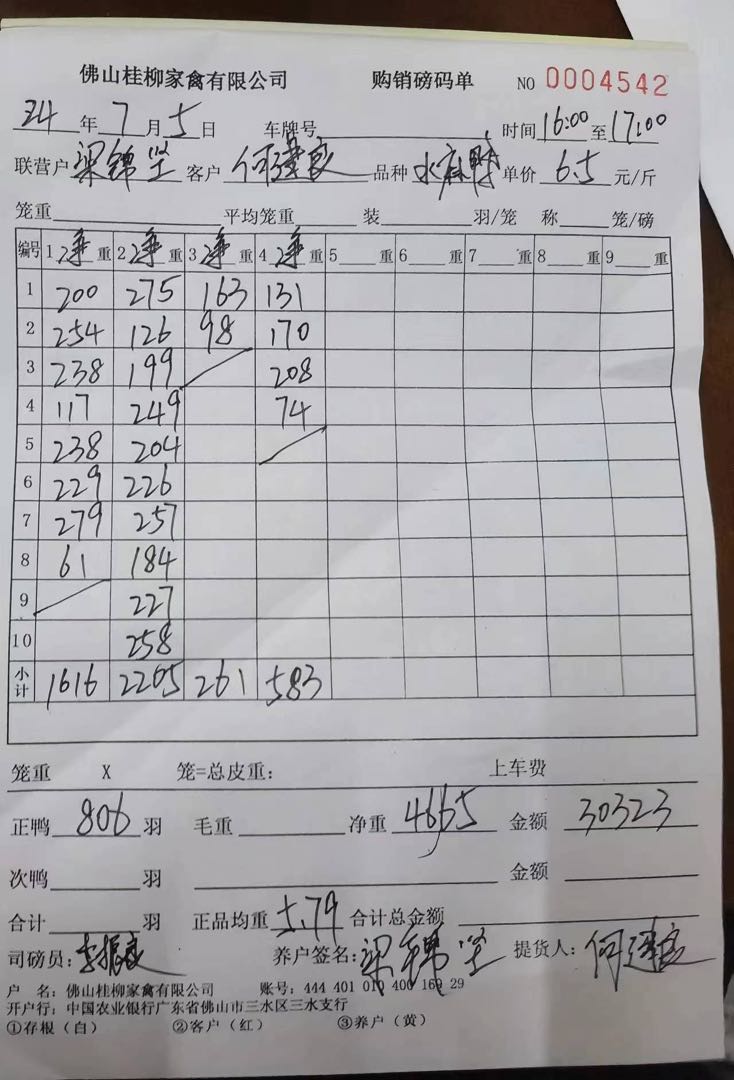 佛山桂柳家禽有限公司 购销磅码单 NO 0004542
24年7月5日 车牌号 时间16:00至17:00
联营户 梁锦坚 客户 何建良 品种 水麻鸭 单价 6.5 元/斤
笼重 平均笼重 装 羽/笼 称 笼/磅
编号 1净重 2净重 3净重 4净重 5 重 6 重 7 重 8 重 9 重
1 200 275 163 131
2 254 126 98 170
3 238 199 208
4 117 249 74
5 238 204
6 229 226
7 279 257
8 61 184
9 227
10 258
小计 1616 2205 261 583
笼重 X 笼=总皮重: 上车费
正鸭 806 羽 毛重 净重 4665 金额 30323
次鸭 羽 金额
合计 羽 正品均重 5.79 合计总金额
司磅员:李振良 养户签名:梁锦坚 提货人:何建良
户 名:佛山桂柳家禽有限公司 账号:444 401 010 400 169 29
开户行:中国农业银行广东省佛山市三水区三水支行
①存根(白) ②客户(红) ③养户(黄)